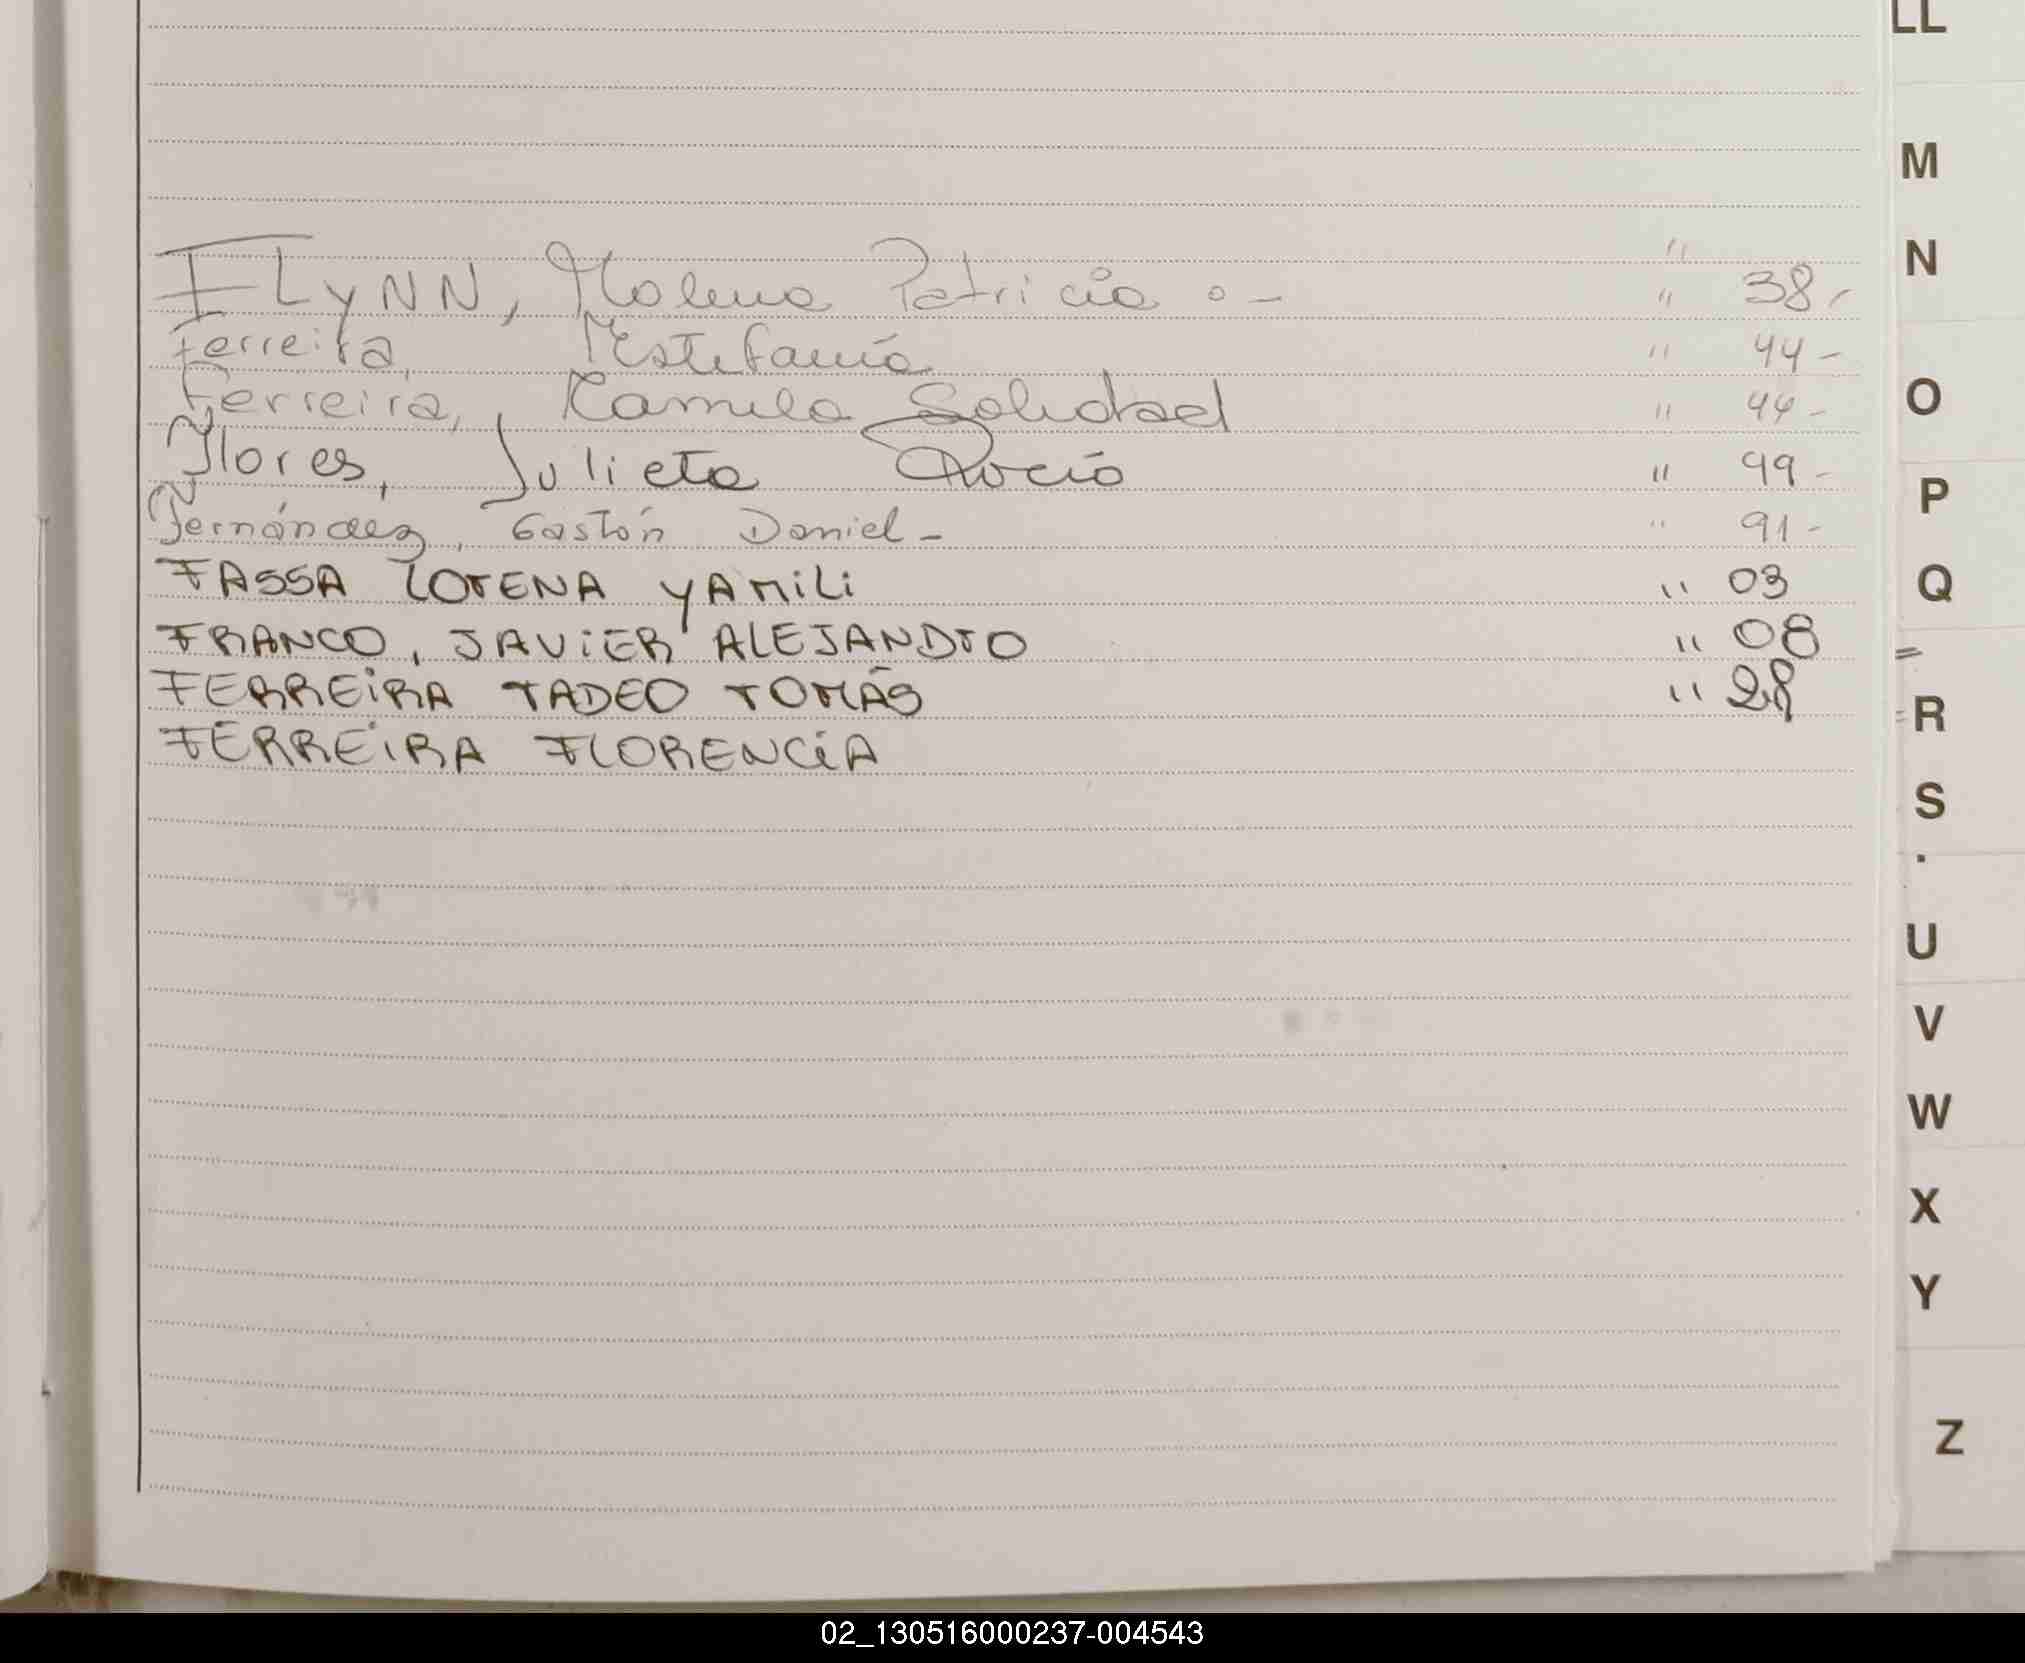 LL
M
N
O
P
Q
R
S
U
V
W
X
Y
Z
"
FLyNN, Molena Patricia .- " 38-
Ferreira, Estefanía " 44-
Ferreira, Kamila Soledad " 44-
Flores, Julieta Rocío " 99-
Fernández, Gastón Daniel- " 91-
FASSA LORENA YAMILI " 03
FRANCO, JAVIER ALEJANDRO " 08
FERREIRA TADEO TOMÁS " 28
FERREIRA FLORENCIA
02_130516000237-004543